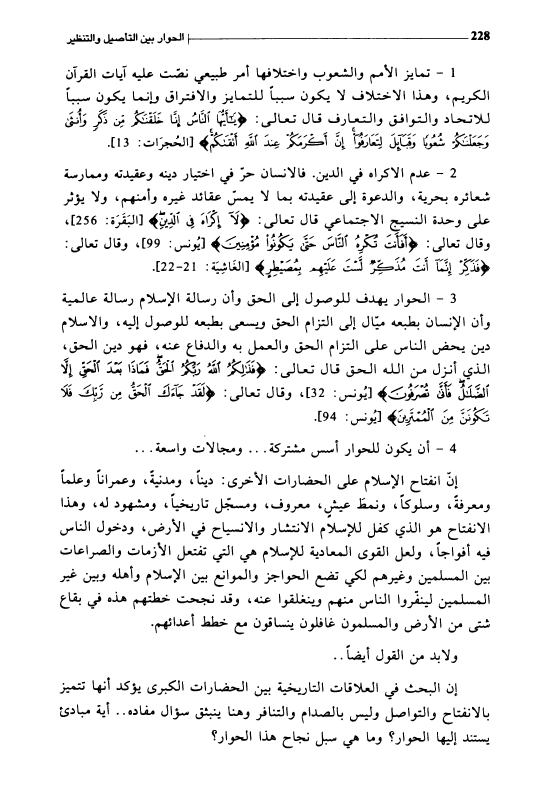 228 الحوار بين التأصيل والتنظير
1 - تمايز الأمم والشعوب واختلافها أمر طبيعي نصّت عليه آيات القرآن
الكريم، وهذا الاختلاف لا يكون سبباً للتمايز والافتراق وإنما يكون سبباً
للاتحاد والتوافق والتعارف قال تعالى: ﴿يَٰٓأَيُّهَا ٱلنَّاسُ إِنَّا خَلَقْنَٰكُم مِّن ذَكَرٍ وَأُنثَىٰ
وَجَعَلْنَٰكُمْ شُعُوبًا وَقَبَآئِلَ لِتَعَارَفُوٓا۟ إِنَّ أَكْرَمَكُمْ عِندَ ٱللَّهِ أَتْقَىٰكُمْ﴾ [الحُجرَات: 13].
2 - عدم الاكراه في الدين. فالانسان حرّ في اختيار دينه وعقيدته وممارسة
شعائره بحرية، والدعوة إلى عقيدته بما لا يمسّ عقائد غيره وأمنهم، ولا يؤثر
على وحدة النسيج الاجتماعي قال تعالى: ﴿لَآ إِكْرَاهَ فِى ٱلدِّينِ﴾ [البَقَرَة: 256]،
وقال تعالى: ﴿أَفَأَنتَ تُكْرِهُ ٱلنَّاسَ حَتَّىٰ يَكُونُوا۟ مُؤْمِنِينَ﴾ [يُونس: 99]، وقال تعالى:
﴿فَذَكِّرْ إِنَّمَآ أَنتَ مُذَكِّرٌ لَّسْتَ عَلَيْهِم بِمُصَيْطِرٍ﴾ [الغَاشِيَة: 21-22].
3 - الحوار يهدف للوصول إلى الحق وأن رسالة الإسلام رسالة عالمية
وأن الإنسان بطبعه ميّال إلى التزام الحق ويسعى بطبعه للوصول إليه، والاسلام
دين يحض الناس على التزام الحق والعمل به والدفاع عنه، فهو دين الحق،
الذي أنزل من الله الحق قال تعالى: ﴿فَذَٰلِكُمُ ٱللَّهُ رَبُّكُمُ ٱلْحَقُّ فَمَاذَا بَعْدَ ٱلْحَقِّ إِلَّا
ٱلضَّلَٰلُ فَأَنَّىٰ تُصْرَفُونَ﴾ [يُونس: 32]، وقال تعالى: ﴿لَقَدْ جَآءَكَ ٱلْحَقُّ مِن رَّبِّكَ فَلَا
تَكُونَنَّ مِنَ ٱلْمُمْتَرِينَ﴾ [يُونس: 94].
4 - أن يكون للحوار أسس مشتركة... ومجالات واسعة...
إنّ انفتاح الإسلام على الحضارات الأخرى: ديناً، ومدنيةً، وعمراناً وعلماً
ومعرفةً، وسلوكاً، ونمطَ عيشٍ، معروف، ومسجّل تاريخياً، ومشهود له، وهذا
الانفتاح هو الذي كفل للإسلام الانتشار والانسياح في الأرض، ودخول الناس
فيه أفواجاً، ولعل القوى المعادية للإسلام هي التي تفتعل الأزمات والصراعات
بين المسلمين وغيرهم لكي تضع الحواجز والموانع بين الإسلام وأهله وبين غير
المسلمين لينفّروا الناس منهم وينغلقوا عنه، وقد نجحت خطتهم هذه في بقاع
شتى من الأرض والمسلمون غافلون ينساقون مع خطط أعدائهم.
ولابد من القول أيضاً..
إن البحث في العلاقات التاريخية بين الحضارات الكبرى يؤكد أنها تتميز
بالانفتاح والتواصل وليس بالصدام والتنافر وهنا ينبثق سؤال مفاده.. أية مبادئ
يستند إليها الحوار؟ وما هي سبل نجاح هذا الحوار؟